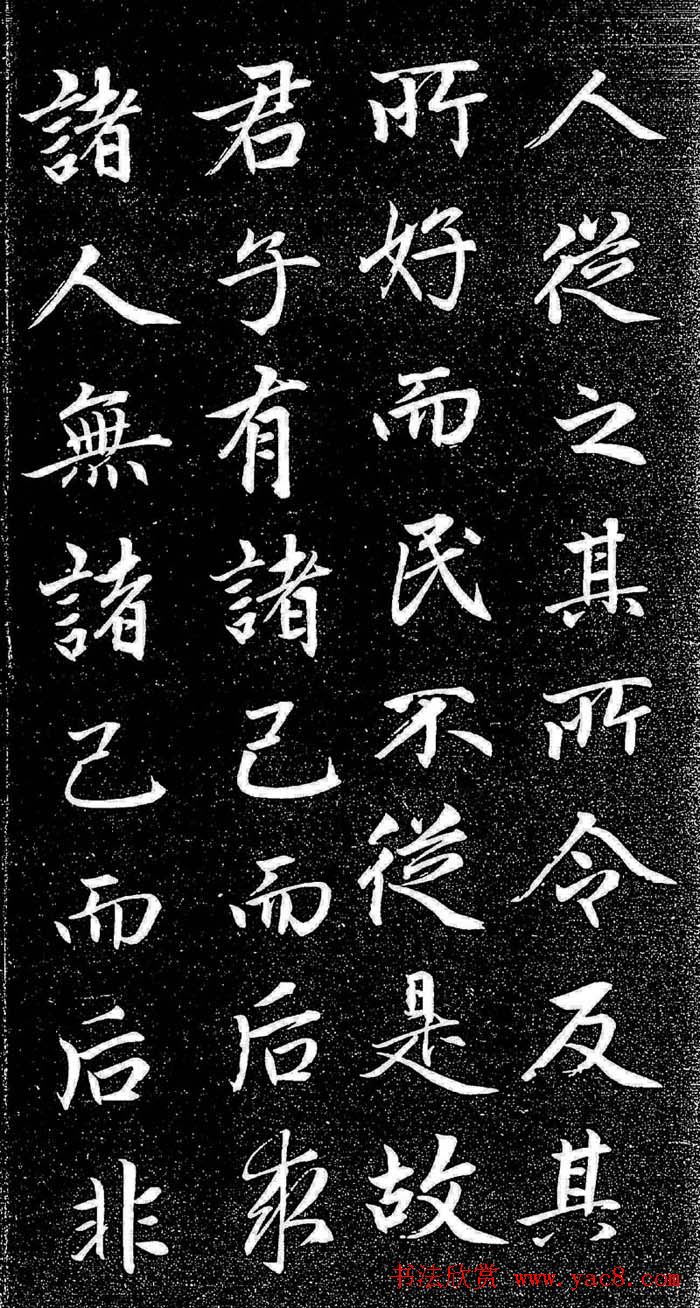 人從之其所令反其
所好而民不從是故
君子有諸己而后求
諸人無諸己而后非
书法欣赏 www.yac8.com